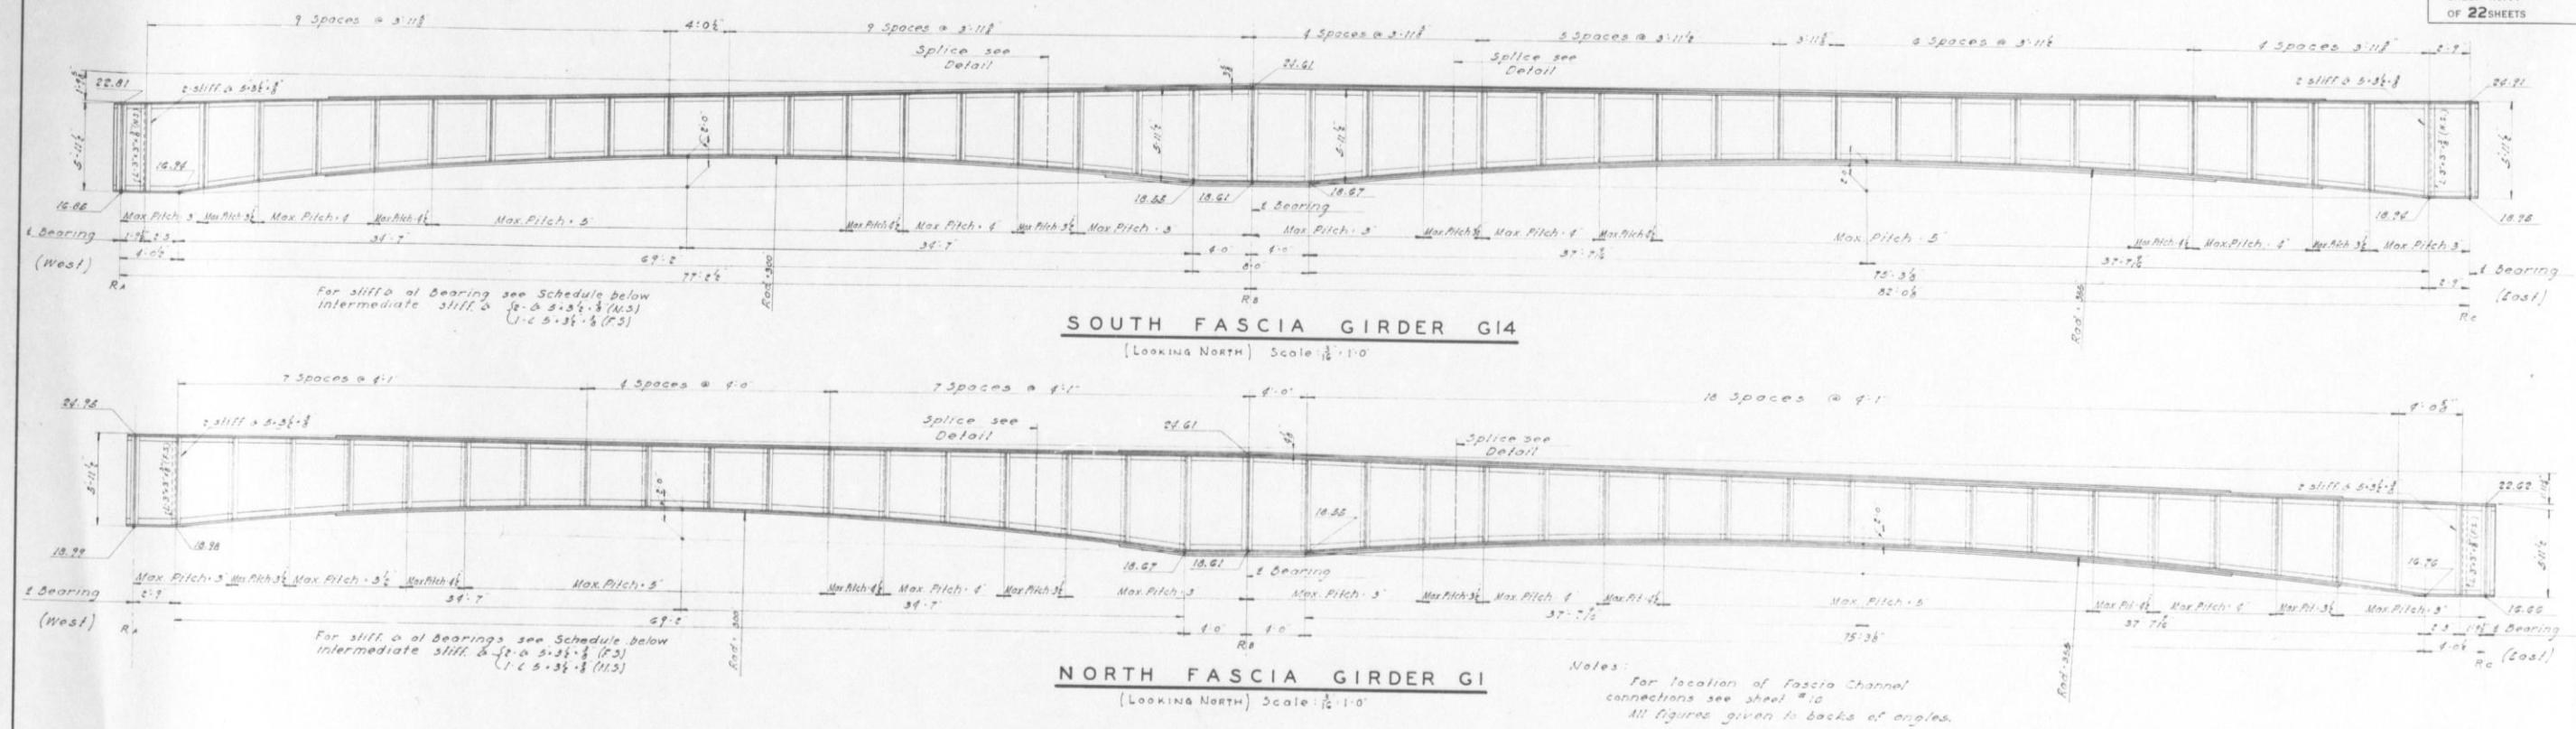 OF 22 SHEETS
9 Spaces @ 3'-11⅞"
4'-0½"
9 Spaces @ 3'-11⅞"
4 Spaces @ 3'-11⅞"
5 Spaces @ 3'-11½"
6 Spaces @ 3'-11½"
4 Spaces 3'-11⅞"
2'-9"
Splice see
Detail
24.61
Splice see
Detail
22.81
24.91
5'-11½"
5'-11½"
5'-11½"
5'-11½"
16.94
16.86
18.55
18.61
18.67
18.94
18.96
Max. Pitch = 3"
Max Pitch 3½"
Max. Pitch = 4"
Max Pitch 4½"
Max. Pitch = 5"
Max Pitch 4½"
Max. Pitch = 4"
Max Pitch 3½"
Max. Pitch = 3"
℄ Bearing
Max. Pitch = 3"
Max Pitch 3½"
Max. Pitch = 4"
Max Pitch 4½"
Max. Pitch = 5"
Max Pitch 4½"
Max. Pitch = 4"
Max Pitch 3½"
Max. Pitch 3"
℄ Bearing
(West)
34'-7"
34'-7"
4'-0"
4'-0"
4'-0½"
69'-2"
8'-0"
77'-2½"
2'-9"
℄ Bearing
(East)
RA
RB
RC
Rad = 300'
Rad = 355'
For stiff. ∠s at Bearing see Schedule below
intermediate stiff. ∠s {2-∠s 5×3½×⅜ (N.S)
1-∠ 5×3½×⅜ (F.S)
SOUTH FASCIA GIRDER G14
(LOOKING NORTH) Scale: 3/16" = 1'-0"
7 Spaces @ 4'-1"
4 Spaces @ 4'-0"
7 Spaces @ 4'-1"
4'-0"
18 Spaces @ 4'-1"
24.96
Splice see
Detail
24.61
Splice see
Detail
22.62
5'-11½"
5'-11½"
18.99
18.98
18.67
18.61
18.55
16.76
16.66
Max. Pitch = 3"
Max Pitch 3½"
Max. Pitch = 3½"
Max Pitch 4½"
Max. Pitch = 5"
Max Pitch 4½"
Max. Pitch = 4"
Max Pitch 3½"
Max. Pitch = 3"
℄ Bearing
Max. Pitch = 3"
Max Pitch 3½"
Max. Pitch = 4"
Max Pit. 4½"
Max. Pitch = 5"
Max Pit. 4½"
Max. Pitch = 4"
Max Pit. 3½"
Max. Pitch = 3"
℄ Bearing
(West)
2'-9"
34'-7"
34'-7"
69'-2"
4'-0"
4'-0"
4'-0½"
℄ Bearing
(East)
RA
RB
RC
Rad = 300'
Rad = 355'
For stiff. ∠s at Bearings see Schedule below
intermediate stiff. ∠s {2-∠s 5×3½×⅜ (F.S)
1-∠ 5×3½×⅜ (N.S)
NORTH FASCIA GIRDER G1
(LOOKING NORTH) Scale: 3/16" = 1'-0"
Notes:
For location of Fascia Channel
connections see sheet #10
All figures given to backs of angles.